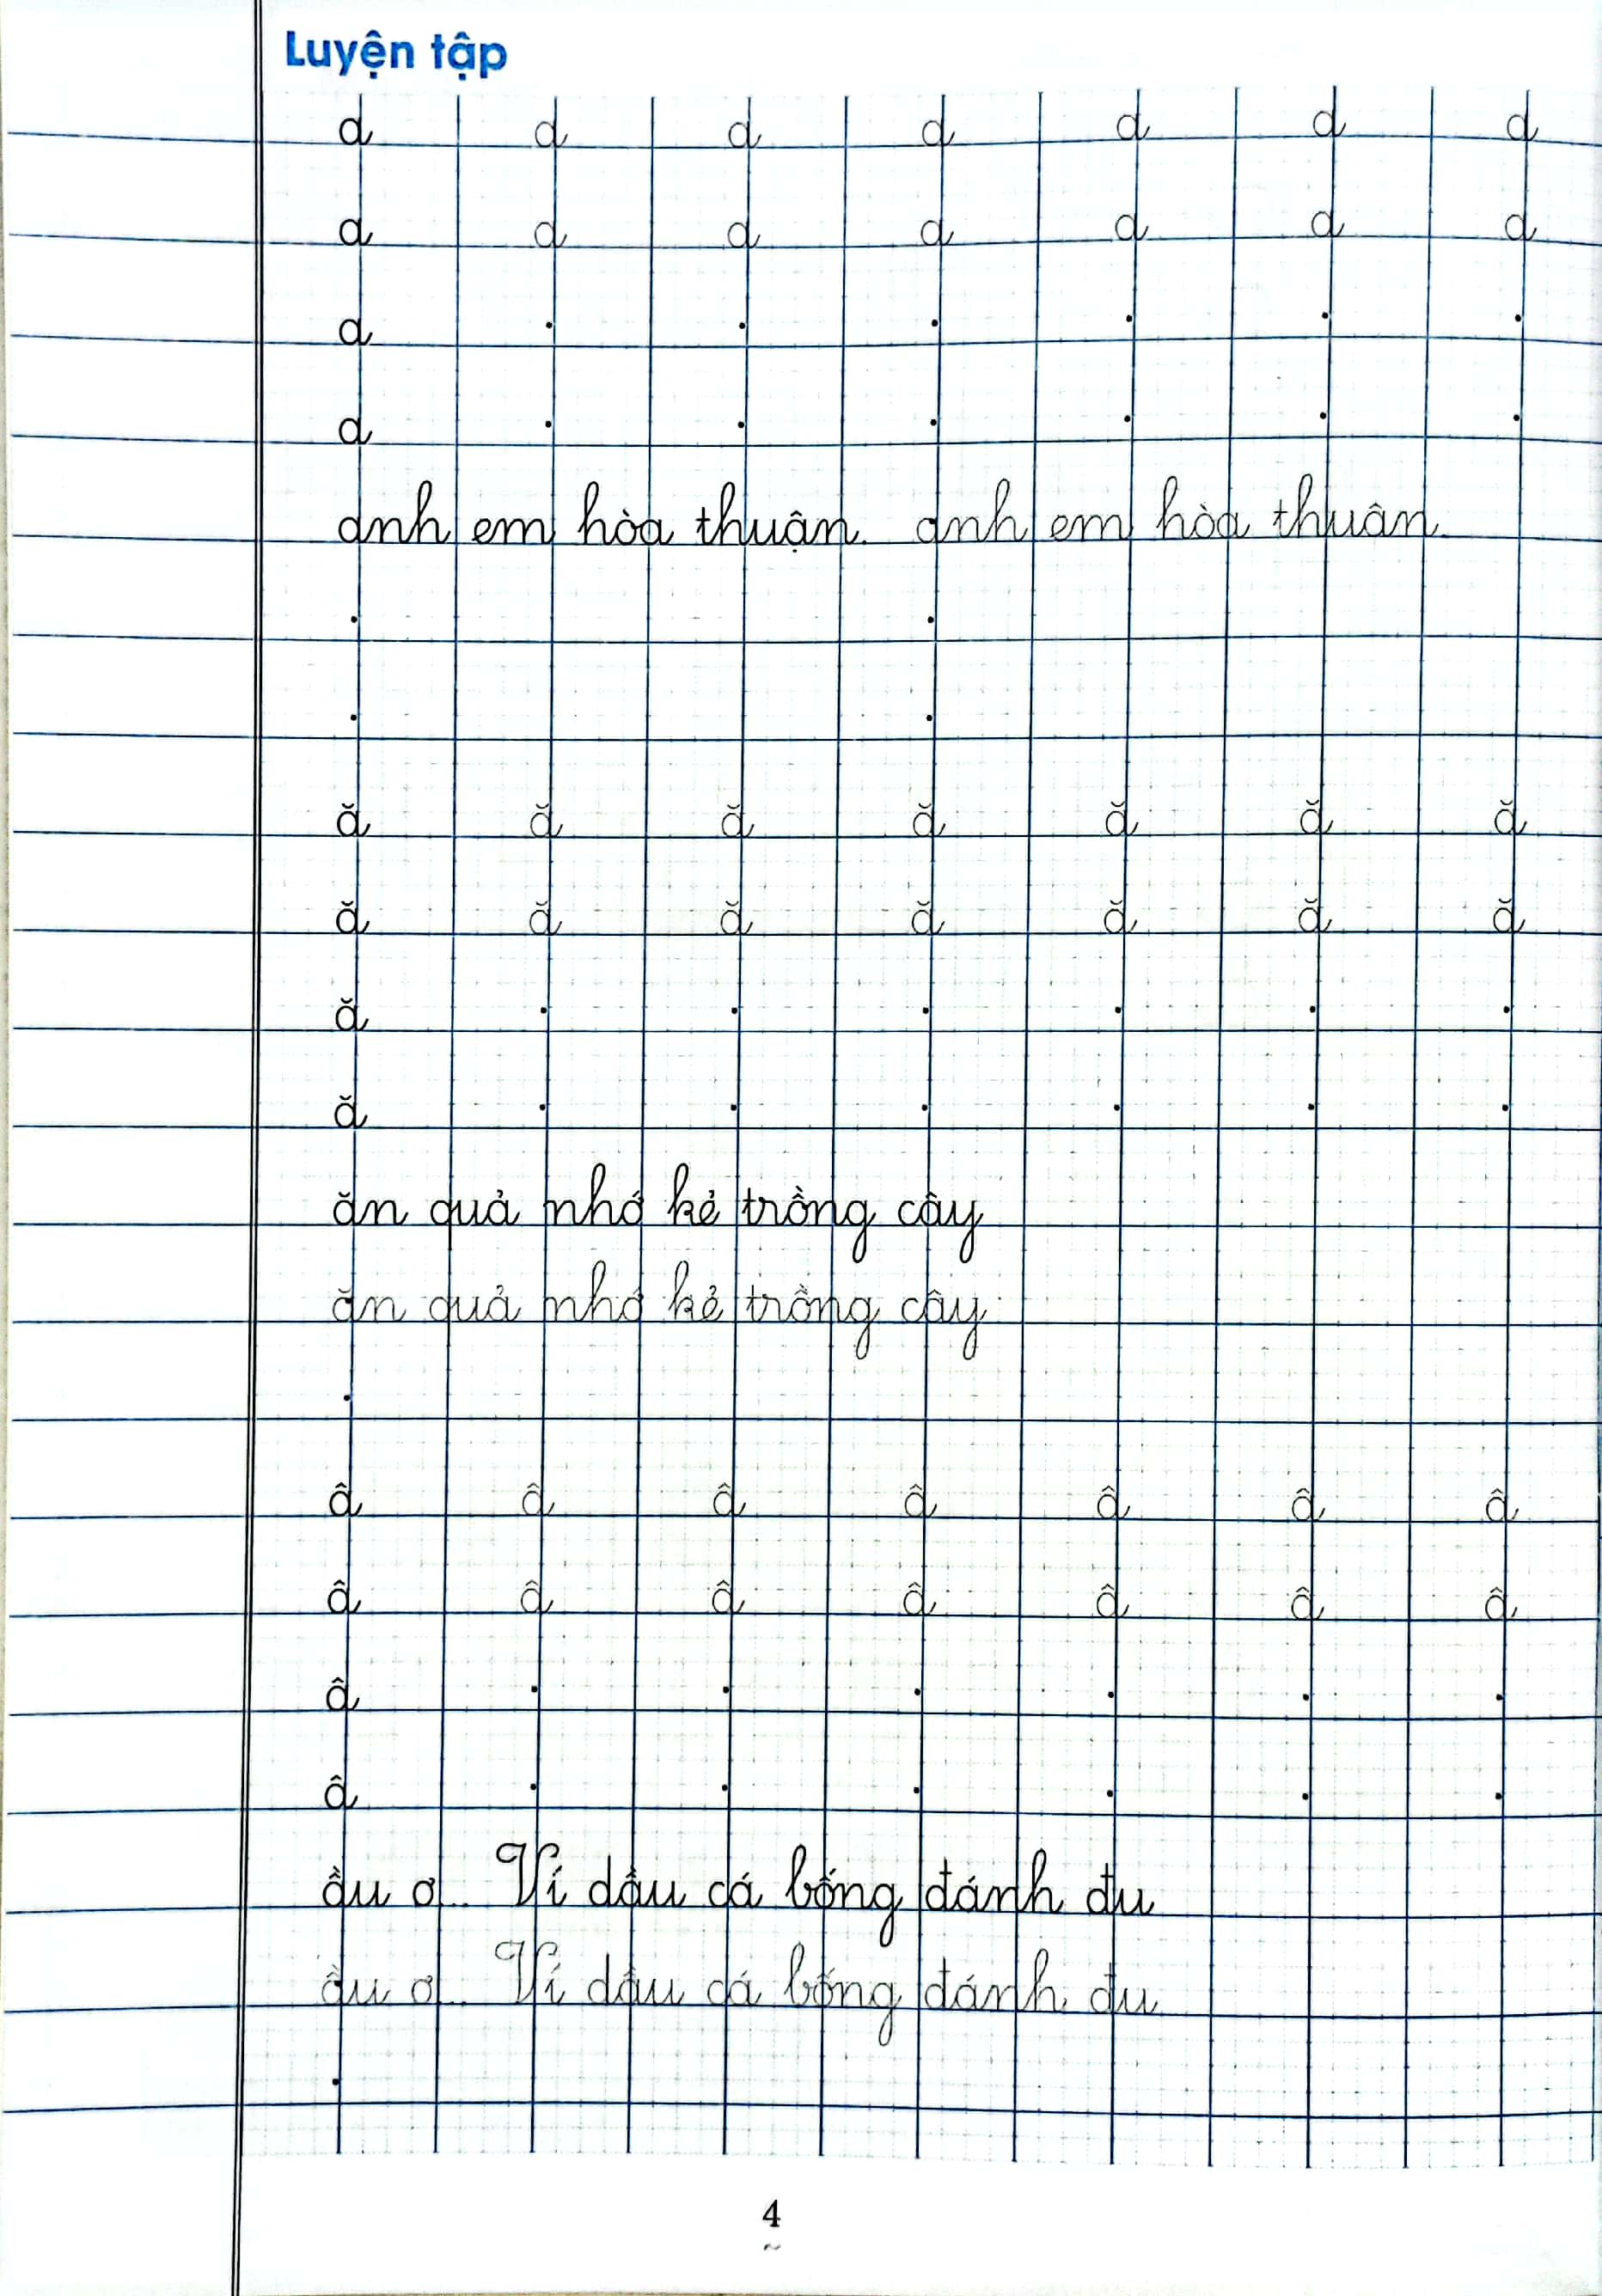 Luyện tập
a a a a a a a
a a a a a a a
a . . . . . .
a . . . . . .
anh em hòa thuận. anh em hòa thuận.
. .
. .
ă ă ă ă ă ă ă
ă ă ă ă ă ă ă
ă . . . . . .
ă . . . . . .
ăn quả nhớ kẻ trồng cây
ăn quả nhớ kẻ trồng cây
.
â â â â â â â
â â â â â â â
â . . . . . .
â . . . . . .
ầu ơ... Ví dầu cá bống đánh đu
ầu ơ... Ví dầu cá bống đánh đu
.
4